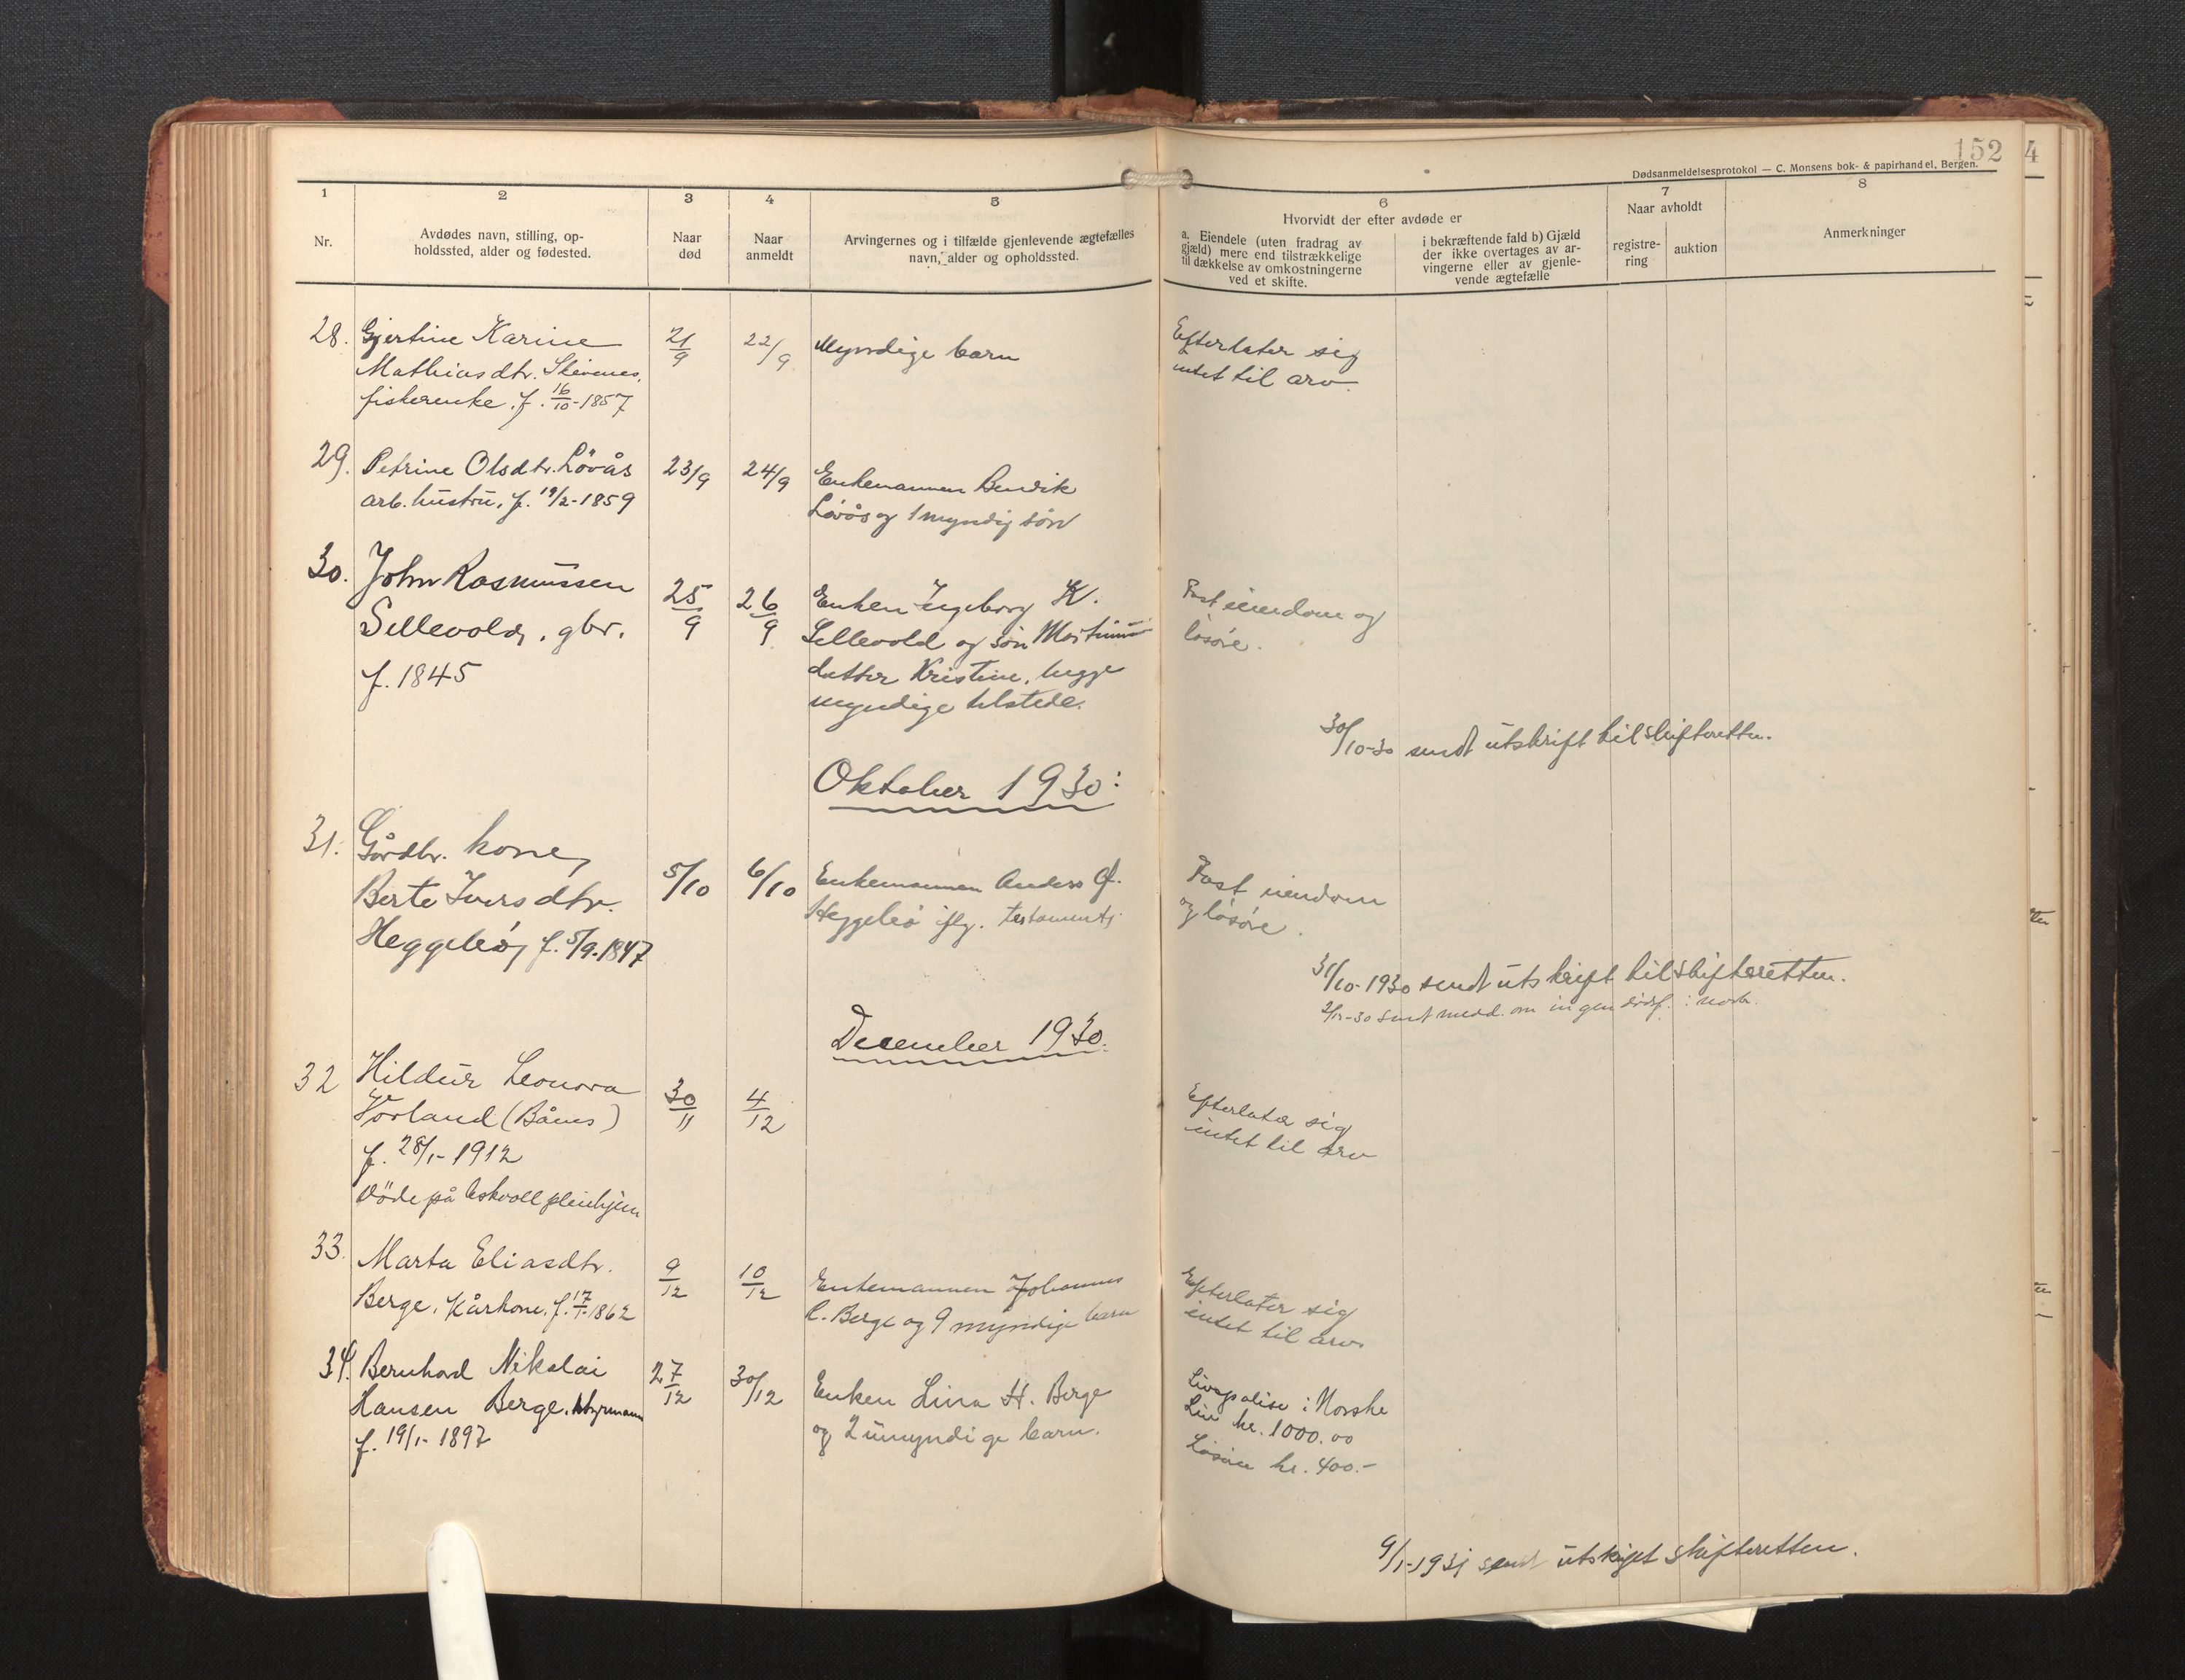 152
4
Dødsanmeldelsesprotokol — C. Monsens bok- & papirhandel, Bergen.
1
2
3
4
5
6
7
8
Nr.
Avdødes navn, stilling, op-
holdssted, alder og fødested.
Naar
død
Naar
anmeldt
Arvingernes og i tilfælde gjenlevende ægtefælles
navn, alder og opholdssted.
Hvorvidt der efter avdøde er
a. Eiendele (uten fradrag av
gjæld) mere end tilstrækkelige
til dækkelse av omkostningerne
ved et skifte.
i bekræftende fald b) Gjæld
der ikke overtages av ar-
vingerne eller av gjenle-
vende ægtefælle
Naar avholdt
registre-
ring
auktion
Anmerkninger
28. Gjertine Karine
Mathiasdtr. Skivenes,
fiskerenke. f. 16/10-1857
21/9
22/9
Myndige barn
Efterlater sig
intet til arv.
29. Petrine Olsdtr. Lövås
arb. hustru, f. 19/2-1859
23/9
24/9
Enkemannen Bendik
Lövås og 1 myndig sön
30. John Rasmussen
Sellevold, gbr.
f. 1845
25/9
26/9
Enken Ingeborg K.
Sellevold og sön
datter Kristine, begge
myndige tilstede.
Fast eiendom og
lösöre.
30/10-30 sendt utskrift til skifteretten.
Oktober 1930:
31. Gårdbr. kone,
Berte Iversdtr.
Heggelö, f. 5/9-1847
5/10
6/10
Enkemannen Anders Ø.
Heggelö iflg. testament.
Fast eiendom
og lösöre.
31/10-1930 sendt utskrift til skifteretten.
sendt medd. om ingen dödsf. i novbr.
December 1930.
32 Hildur Leonora
Vorland (Båms)
f. 28/1-1912
Döde på Askvoll pleiehjem
30/11
4/12
Efterlater sig
intet til arv
33. Marta Eliasdtr.
Berge. kårkone, f. 17/1-1862
9/12
10/12
Enkemannen Johannes
C. Berge og 9 myndige barn
Efterlater sig
intet til arv.
34. Bernhard Nikolai
Hansen Berge. styrmann
f. 19/1-1897
27/12
30/12
Enken Lina H. Berge
og 2 umyndige barn.
Livspolise i Norske
Liv kr. 1000.00
Lösöre kr. 400.-
9/1-1931 sendt utskrift skifteretten.